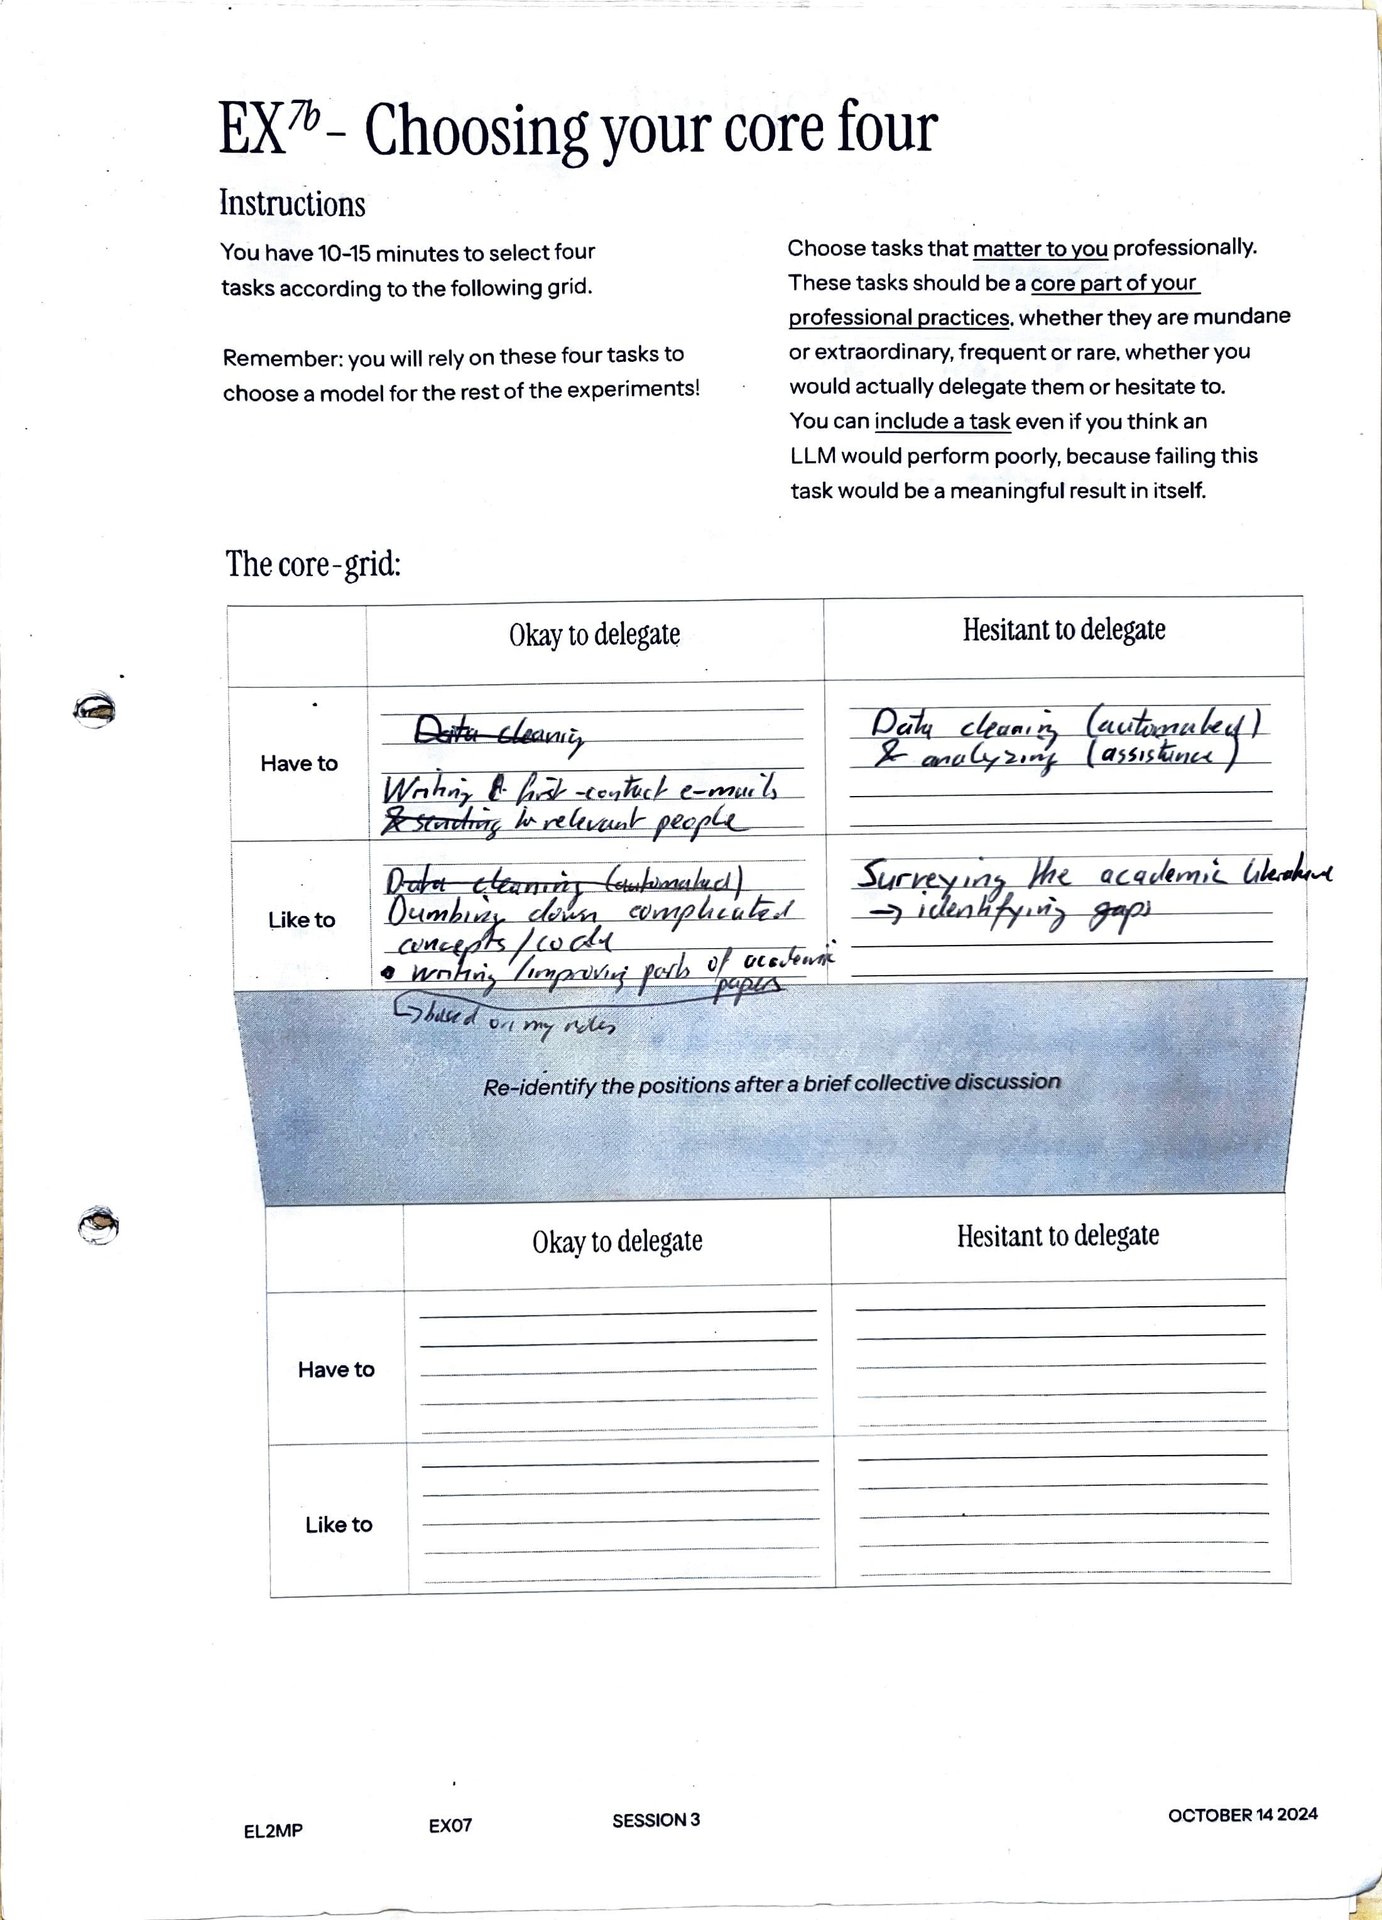 EX7b - Choosing your core four
Instructions
You have 10-15 minutes to select four
tasks according to the following grid.
Remember: you will rely on these four tasks to
choose a model for the rest of the experiments!
Choose tasks that matter to you professionally.
These tasks should be a core part of your
professional practices, whether they are mundane
or extraordinary, frequent or rare, whether you
would actually delegate them or hesitate to.
You can include a task even if you think an
LLM would perform poorly, because failing this
task would be a meaningful result in itself.
The core-grid:
Okay to delegate
Hesitant to delegate
Have to
Data cleaning
Writing first-contact e-mails
& sending to relevant people
Data cleaning (automated)
& analyzing (assistance)
Like to
Data cleaning (automated)
Dumbing down complicated
concepts/
• Writing/improving parts of academic
papers
↳ based on my notes
Surveying the academic literature
→ identifying gaps
Re-identify the positions after a brief collective discussion
Okay to delegate
Hesitant to delegate
Have to
Like to
EL2MP
EX07
SESSION 3
OCTOBER 14 2024